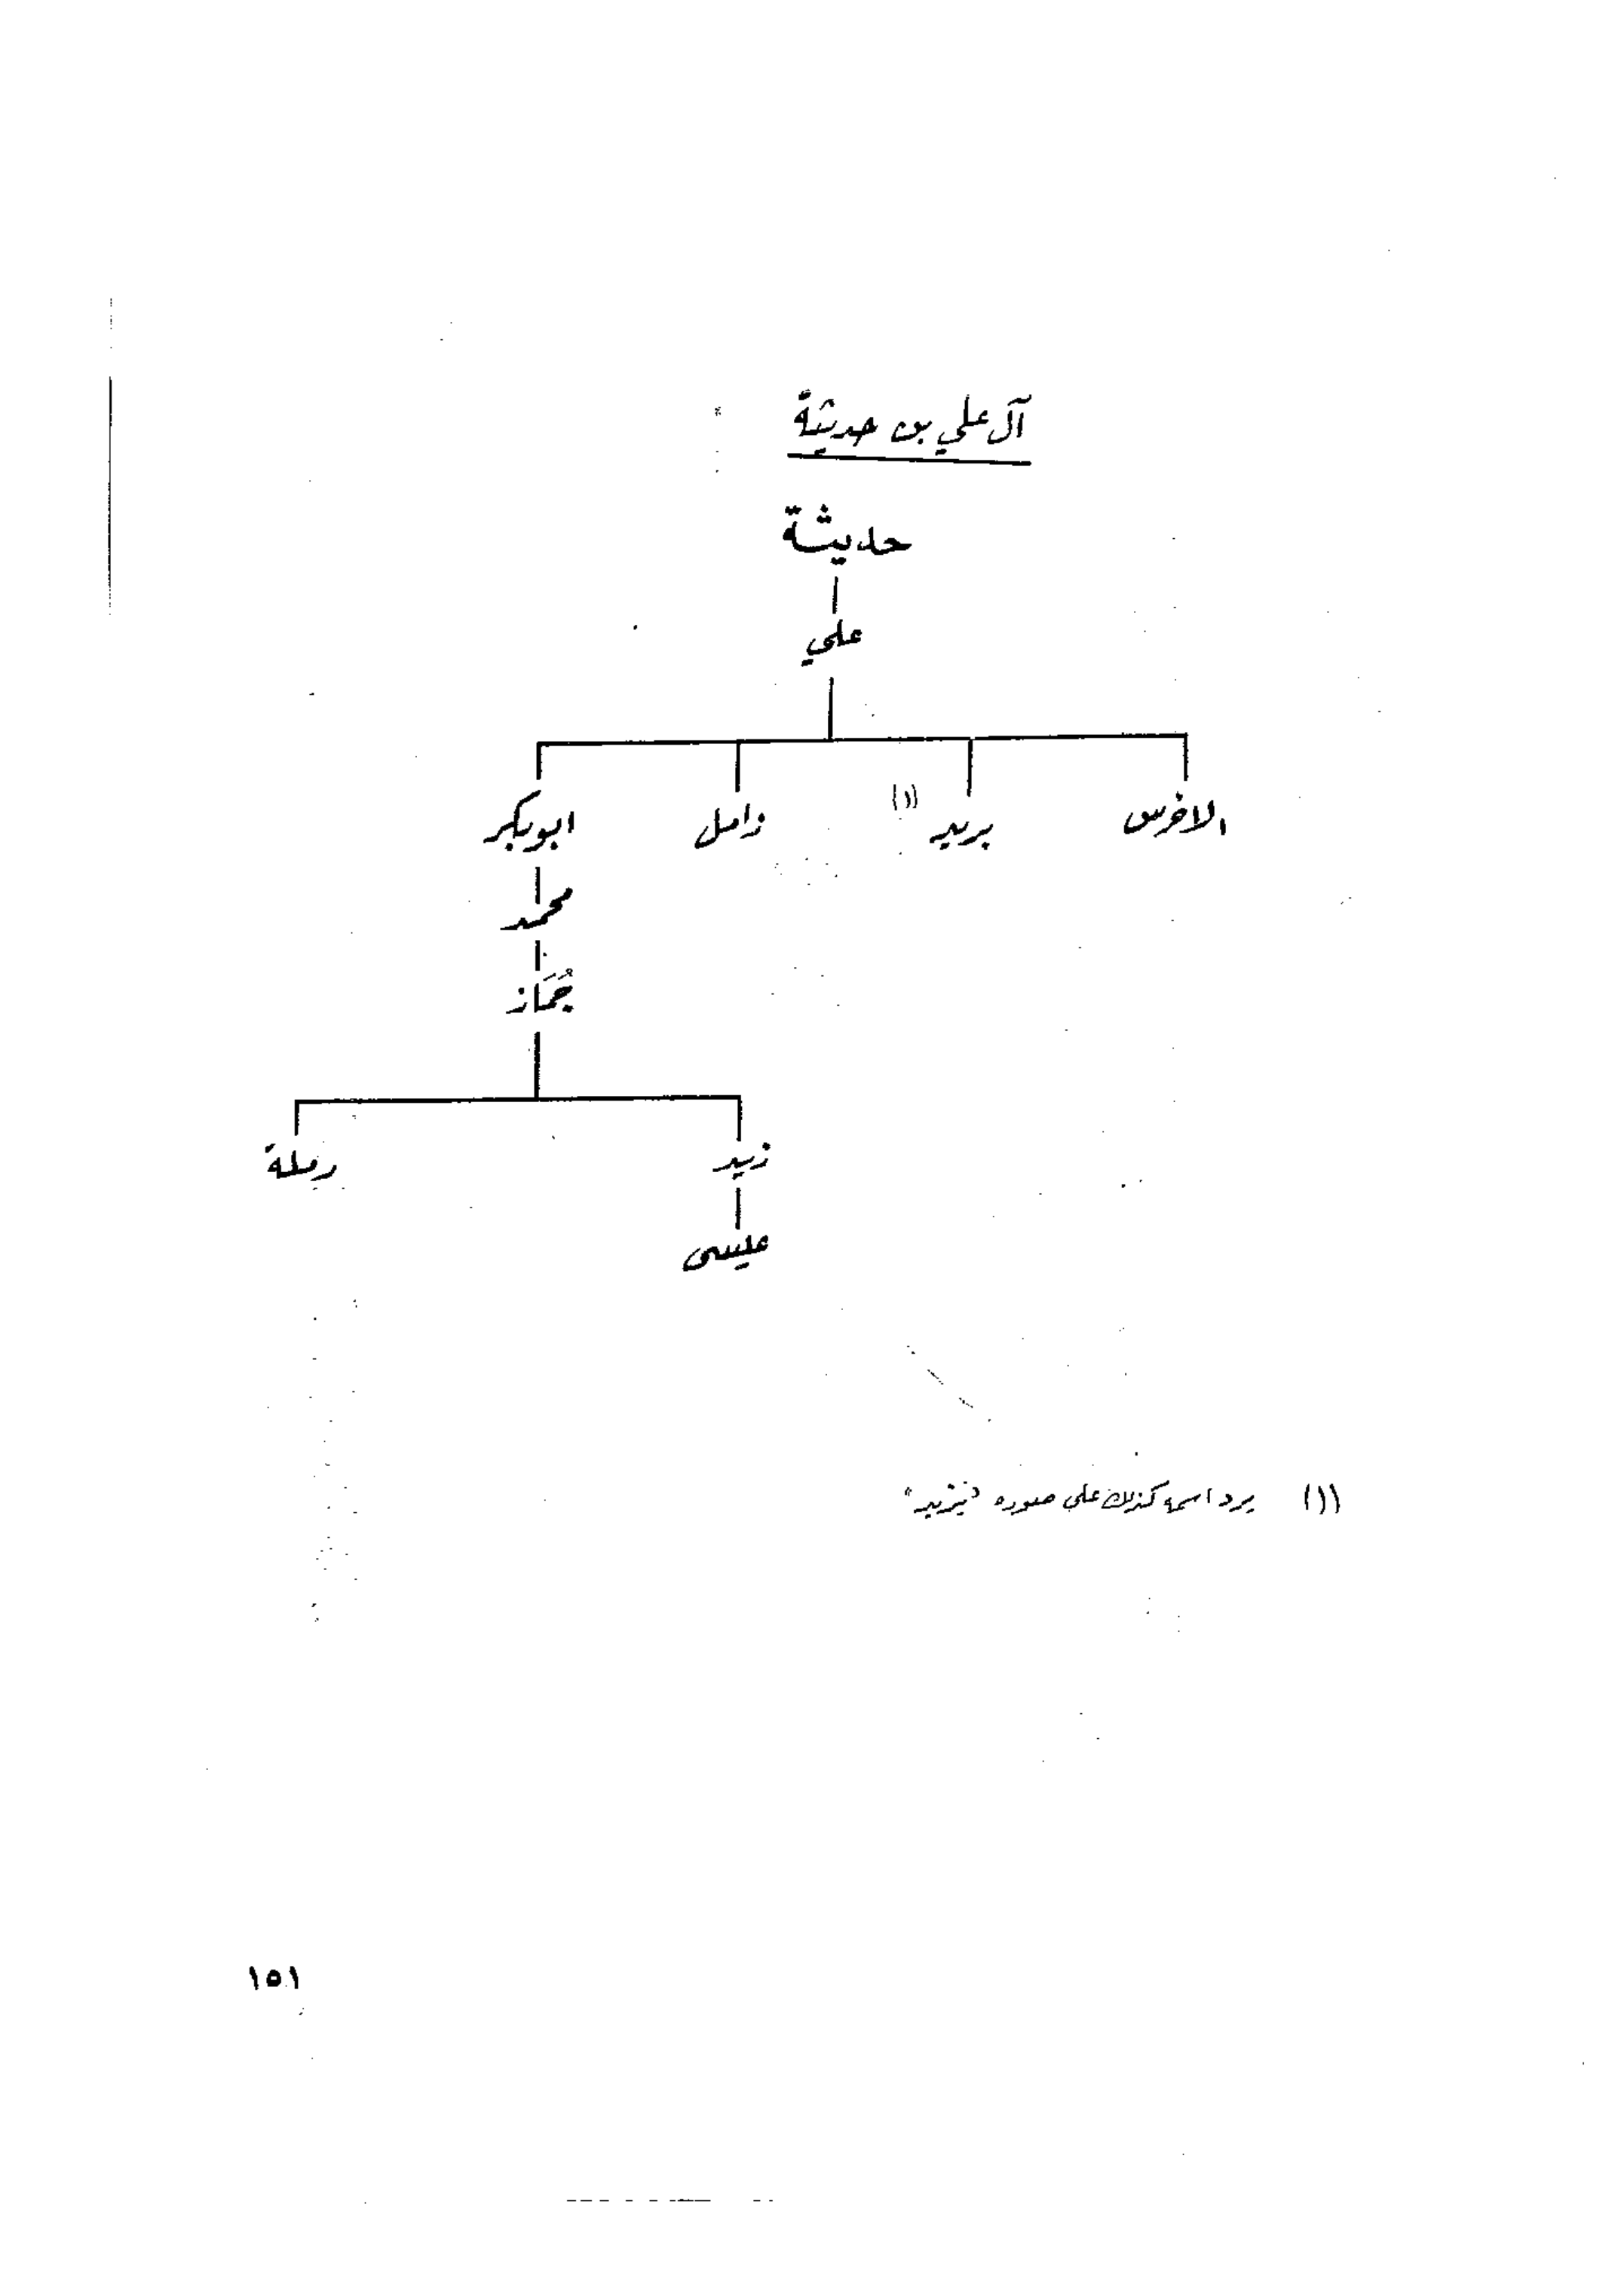 آل علي بن حديثة
حديثة
علي
الاخرس بريد (١) زامل ابوبكر
محمد
جُمَاز
زيد رملة
عيسى
(١) يرد اسمه كذلك على صوره "يزيد"
١٥١